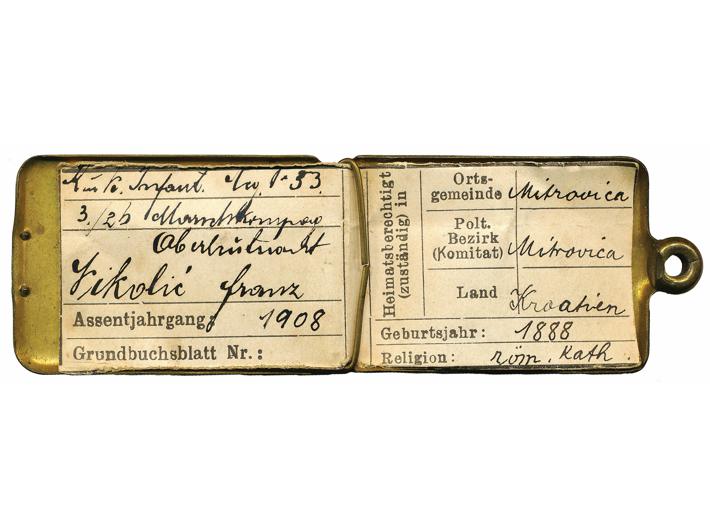 K.u.K. Infant. No 53.
3./26 Marschkompag
Oberleutnant
Nikolić Franz
Assentjahrgang: 1908
Grundbuchsblatt Nr.:
Heimatsberechtigt
(zuständig) in
Orts-
gemeinde Mitrovica
Polt.
Bezirk
(Komitat) Mitrovica
Land Kroatien
Geburtsjahr: 1888
Religion: röm. kath.